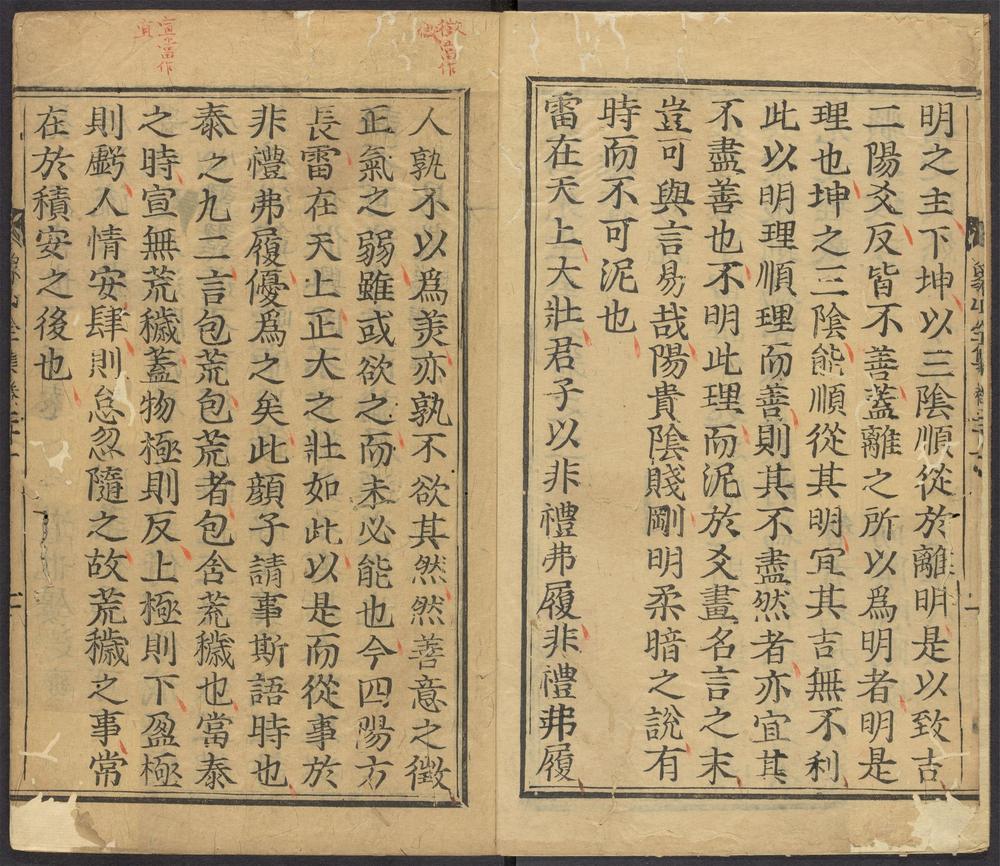 明之主下坤以三陰順從於離明是以致吉
二陽爻反皆不善蓋離之所以爲明者明是
理也坤之三陰能順從其明宜其吉無不利
此以明理順理而善則其不盡然者亦宜其
不盡善也不明此理而泥於爻畫名言之末
豈可與言易哉陽貴陰賤剛明柔暗之說有
時而不可泥也
雷在天上大壯君子以非禮弗履非禮弗履
人孰不以爲美亦孰不欲其然然善意之徵
正氣之弱雖或欲之而未必能也今四陽方
長雷在天上正大之壯如此以是而從事於
非禮弗履優爲之矣此顔子請事斯語時也
泰之九二言包荒包荒者包含荒穢也當泰
之時宣無荒穢蓋物極則反上極則下盈極
則虧人情安肆則怠忽隨之故荒穢之事常
在於積安之後也
徵當作微
宣當作宜